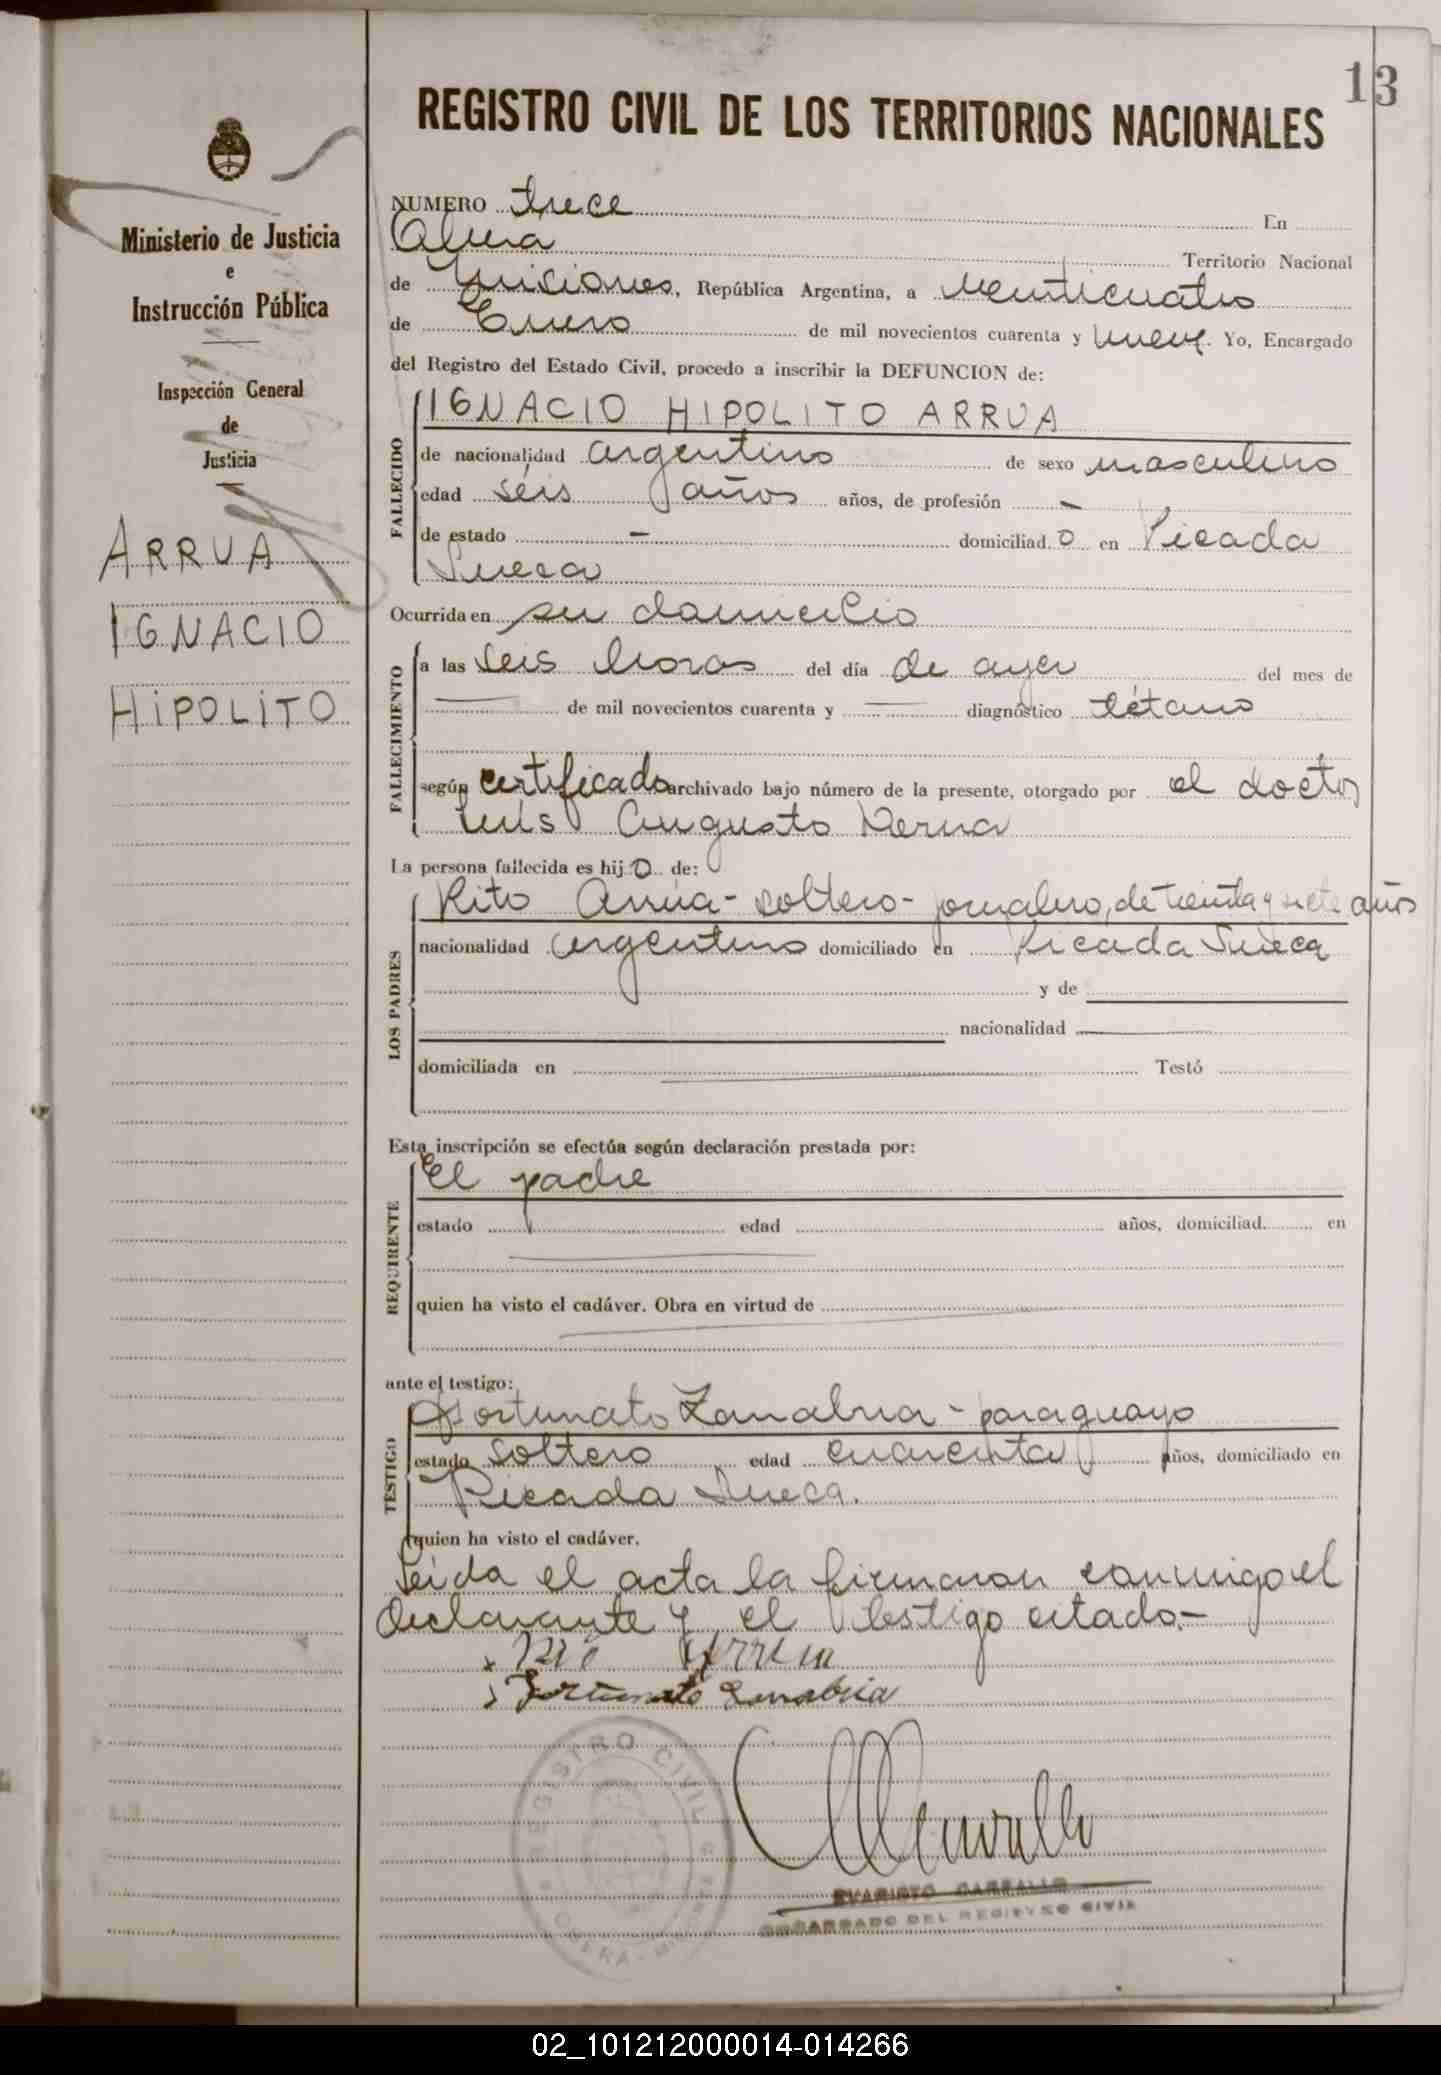 13
REGISTRO CIVIL DE LOS TERRITORIOS NACIONALES
Ministerio de Justicia
e
Instrucción Pública
Inspección General
de
Justicia
ARRUA
IGNACIO
HIPOLITO
NUMERO trece En
Oberá Territorio Nacional
de Misiones, República Argentina, a veinticuatro
de Enero de mil novecientos cuarenta y nueve. Yo, Encargado
del Registro del Estado Civil, procedo a inscribir la DEFUNCION de:
FALLECIDO
IGNACIO HIPOLITO ARRUA
de nacionalidad argentino de sexo masculino
edad seis años años, de profesión -
de estado - domiciliad o en Picada
Sueca
Ocurrida en su domicilio
FALLECIMIENTO
a las seis horas del día de ayer del mes de
de mil novecientos cuarenta y diagnóstico tétano
según certificado archivado bajo número de la presente, otorgado por el doctor
Luís Augusto Derna
La persona fallecida es hij o de:
LOS PADRES
Rito Arrúa - soltero - jornalero, de treinta y siete años
nacionalidad argentino domiciliado en Picada Sueca
y de
nacionalidad
domiciliada en Testó
Esta inscripción se efectúa según declaración prestada por:
REQUIRENTE
El padre
estado edad años, domiciliad en
quien ha visto el cadáver. Obra en virtud de
ante el testigo:
TESTIGO
Fortunato Zanabria - paraguayo
estado soltero edad cuarenta años, domiciliado en
Picada Sueca.
quien ha visto el cadáver.
Leída el acta la firmaron conmigo el
declarante y el testigo citado.-
Arrua
Fortunato Zanabria
REGISTRO CIVIL
OBERA - MISIONES
EVARISTO CARBALLO
ENCARGADO DEL REGISTRO CIVIL
02_101212000014-014266